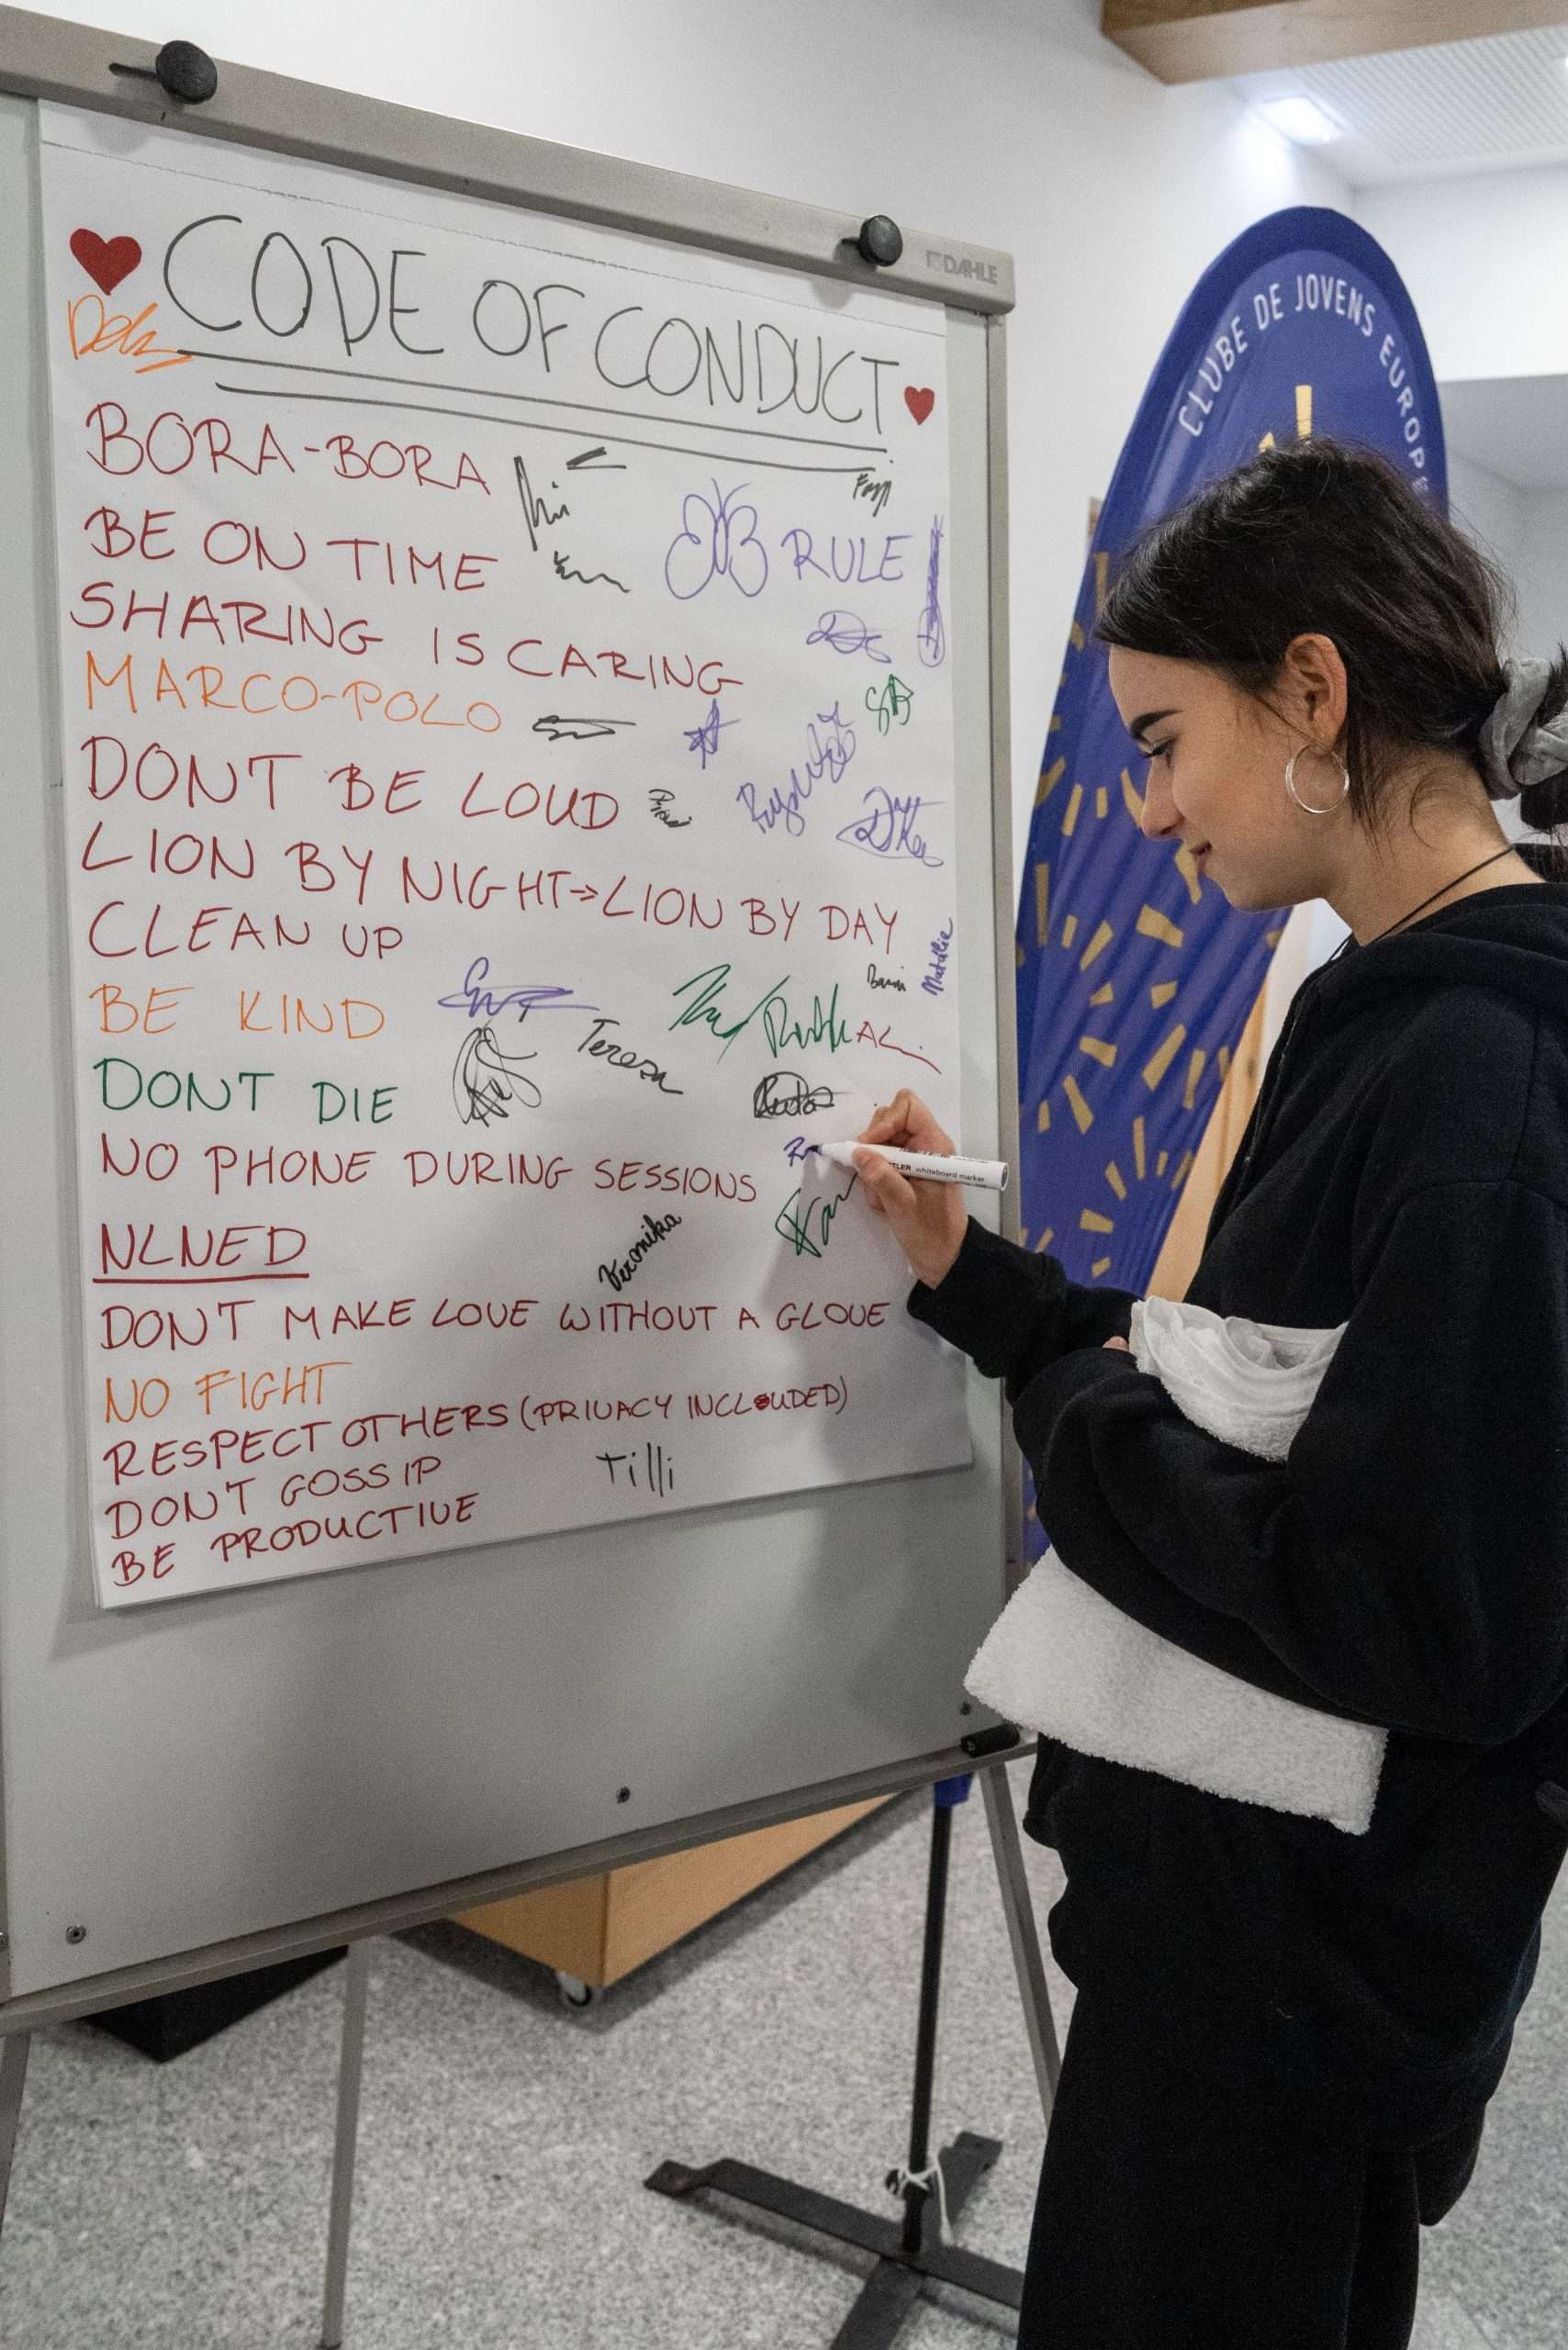 DAHLE
CODE OF CONDUCT
BORA-BORA
BE ON TIME
RULE
SHARING IS CARING
MARCO-POLO
DONT BE LOUD
LION BY NIGHT->LION BY DAY
CLEAN UP
Natálie
BE KIND
Teresa
DONT DIE
NO PHONE DURING SESSIONS
NLNED
Veronika
DON'T MAKE LOVE WITHOUT A GLOVE
NO FIGHT
RESPECT OTHERS (PRIVACY INCLOUDED)
DON'T GOSSIP
Tilli
BE PRODUCTIVE
CLUBE DE JOVENS EUROPE
TLER whiteboard marker